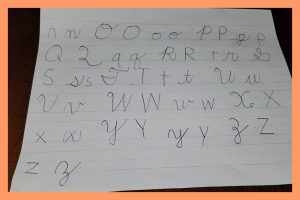 n n O O o o P P p p
Q Q q q R R r r
S s s T T t t U u
V v W W w w X X
x x Y Y y y Z Z
z z